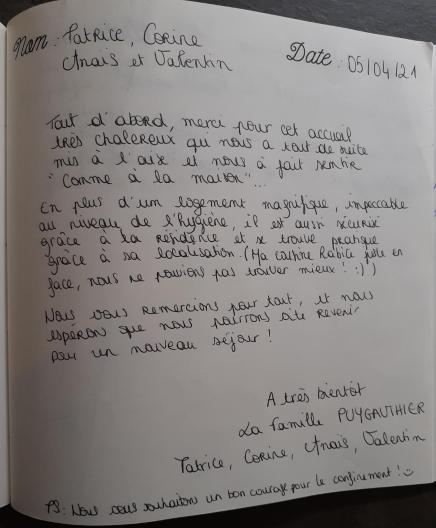 Nom : Patrice, Corine
Anaïs et Valentin
Date : 05/04/21
Tout d'abord, merci pour cet accueil
très chaleureux qui nous a tout de suite
mis à l'aise et nous à fait sentir
"comme à la maison"...
En plus d'un logement magnifique, impeccable
au niveau de l'hygiène, il est aussi sécurisé
grâce à la résidence et se trouve pratique
grâce à sa localisation. (Ma cousine habite juste en
face, nous ne pouvions pas trouver mieux ! :)')
Nous vous remercions pour tout, et nous
espérons que nous pourrons vite revenir
pour un nouveau séjour !
A très bientôt
La famille PUYGAUTHIER
Patrice, Corine, Anaïs, Valentin
PS : Nous vous souhaitons un bon courage pour le confinement ! ☺